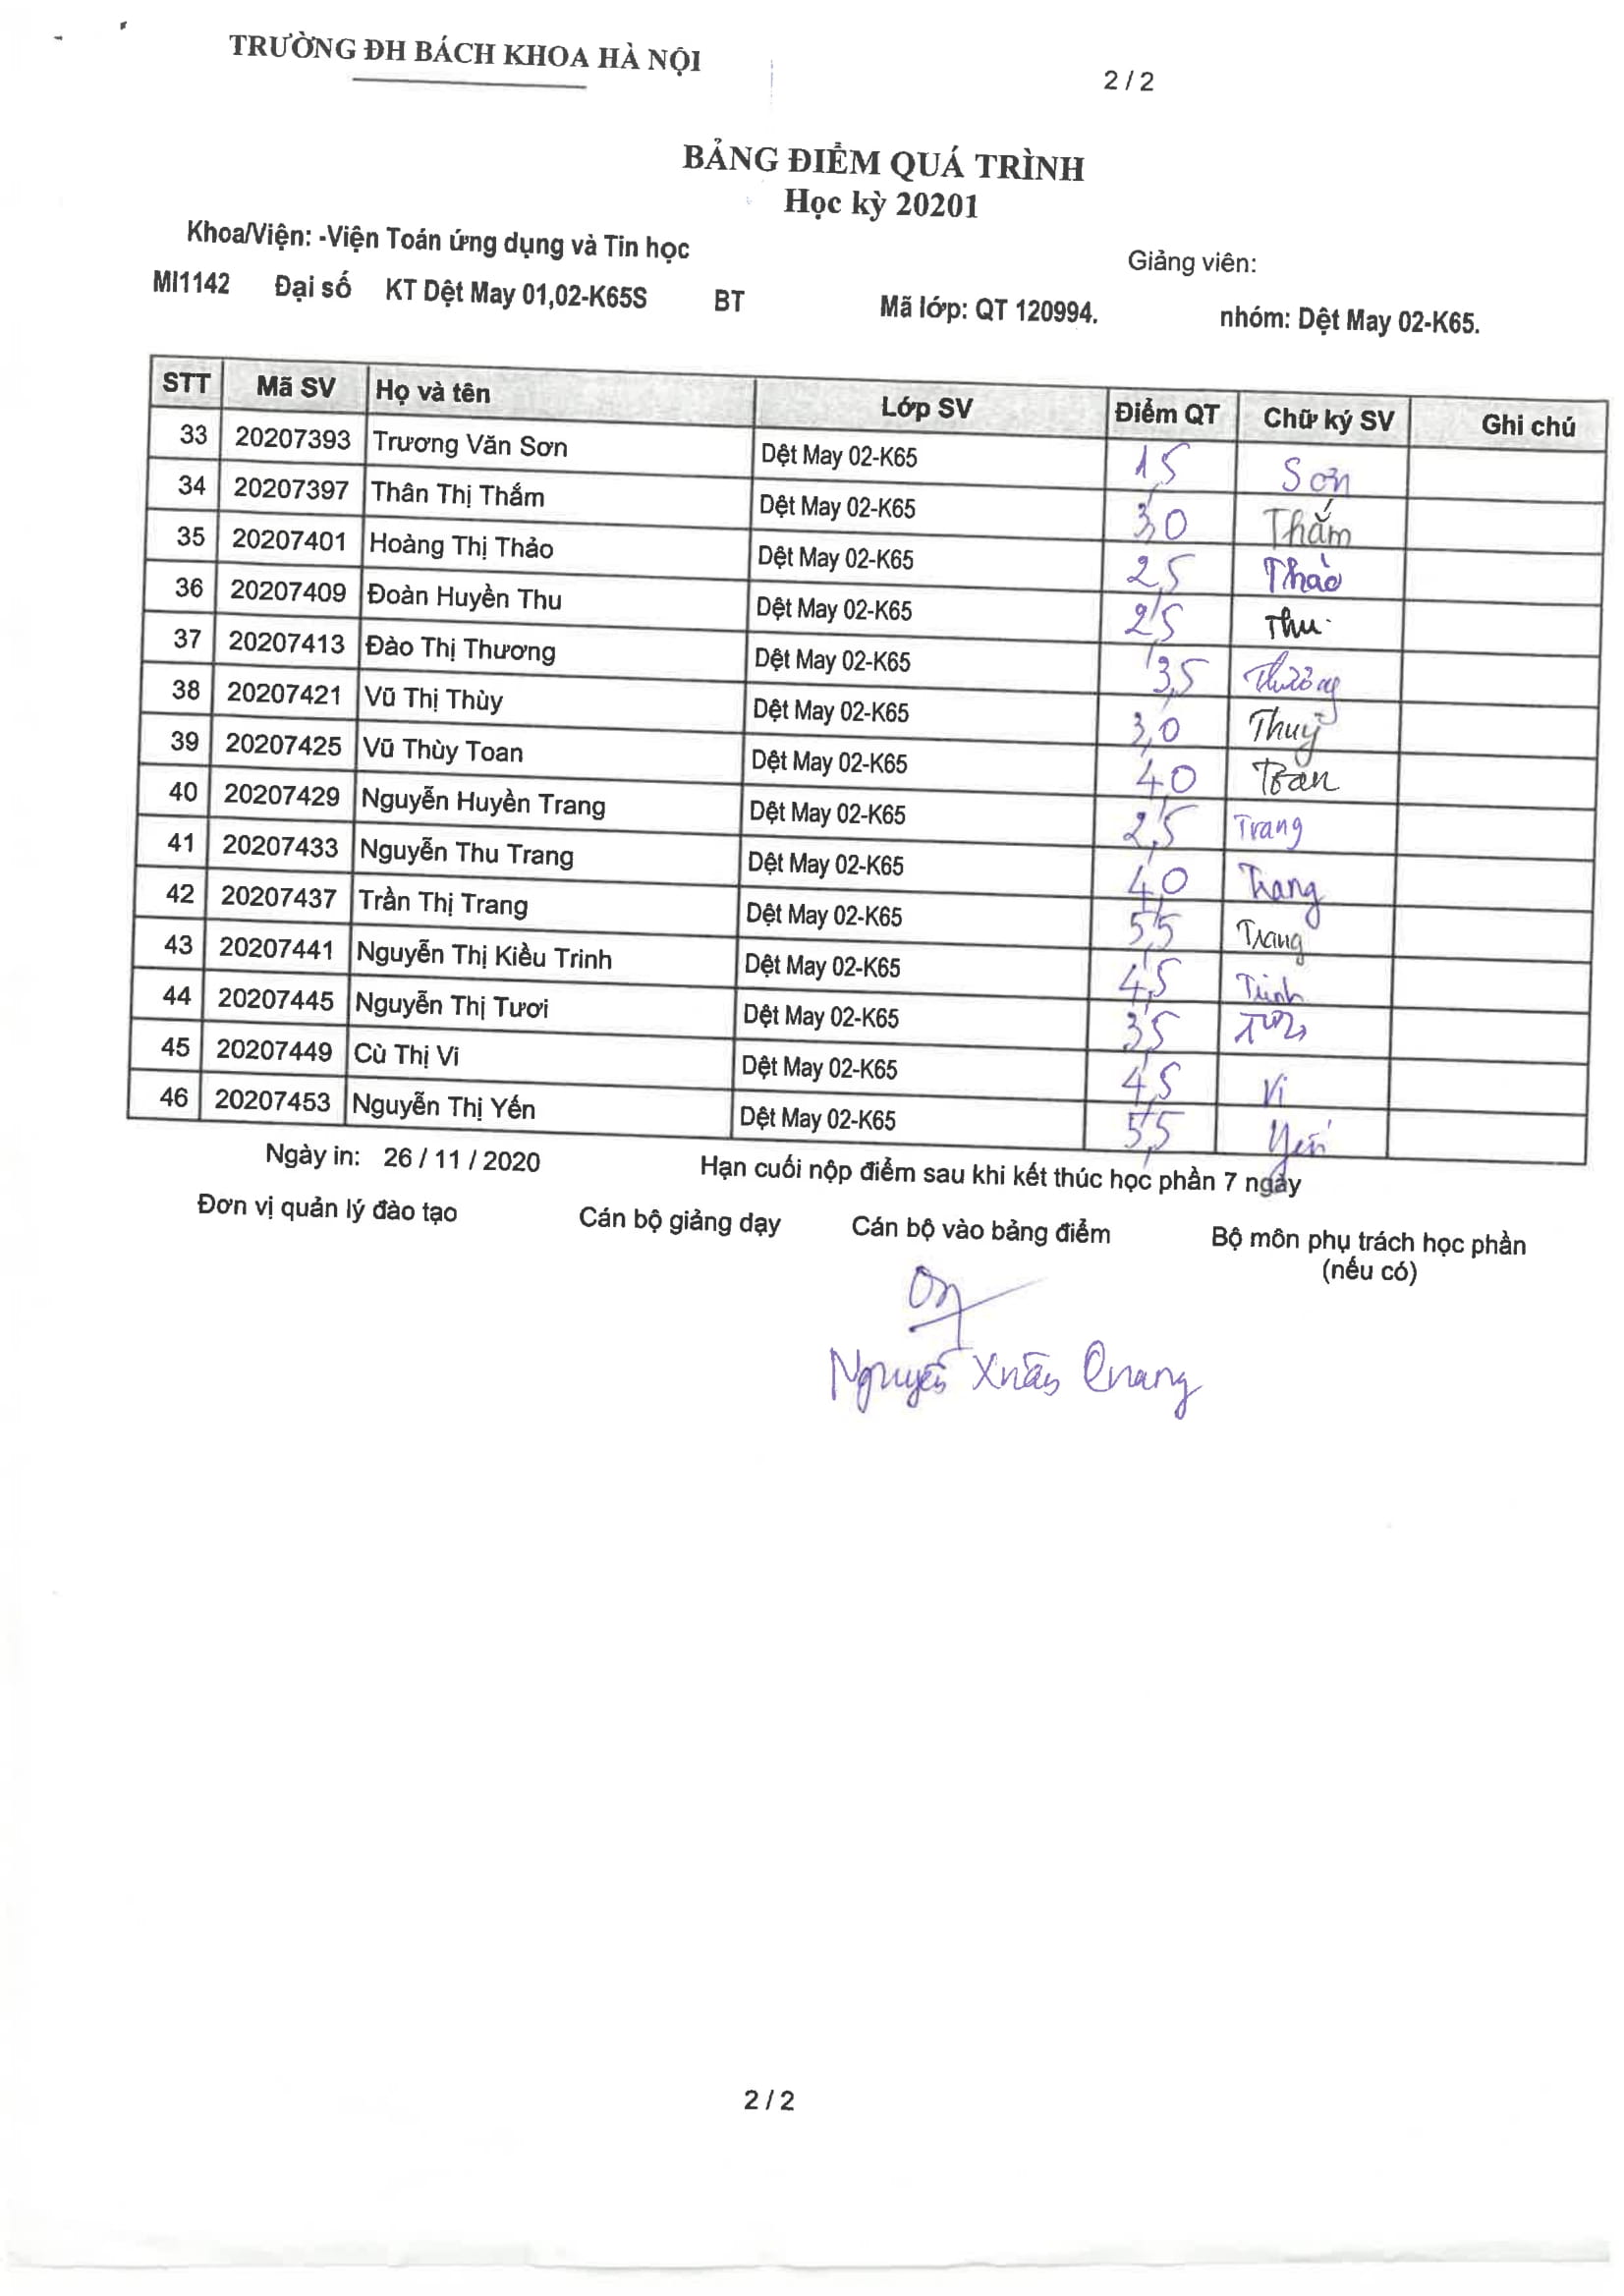 TRƯỜNG ĐH BÁCH KHOA HÀ NỘI
2 / 2
BẢNG ĐIỂM QUÁ TRÌNH
Học kỳ 20201
Khoa/Viện: -Viện Toán ứng dụng và Tin học
Giảng viên:
MI1142 Đại số KT Dệt May 01,02-K65S BT Mã lớp: QT 120994. nhóm: Dệt May 02-K65.
STT Mã SV Họ và tên Lớp SV Điểm QT Chữ ký SV Ghi chú
33 20207393 Trương Văn Sơn Dệt May 02-K65 1,5 Sơn
34 20207397 Thân Thị Thắm Dệt May 02-K65 3,0 Thắm
35 20207401 Hoàng Thị Thảo Dệt May 02-K65 2,5 Thảo
36 20207409 Đoàn Huyền Thu Dệt May 02-K65 2,5 Thu
37 20207413 Đào Thị Thương Dệt May 02-K65 3,5 Thương
38 20207421 Vũ Thị Thùy Dệt May 02-K65 3,0 Thuỳ
39 20207425 Vũ Thùy Toan Dệt May 02-K65 4,0 Toan
40 20207429 Nguyễn Huyền Trang Dệt May 02-K65 2,5 Trang
41 20207433 Nguyễn Thu Trang Dệt May 02-K65 4,0 Trang
42 20207437 Trần Thị Trang Dệt May 02-K65 5,5 Trang
43 20207441 Nguyễn Thị Kiều Trinh Dệt May 02-K65 4,5 Trinh
44 20207445 Nguyễn Thị Tươi Dệt May 02-K65 3,5 Tươi
45 20207449 Cù Thị Vi Dệt May 02-K65 4,5 Vi
46 20207453 Nguyễn Thị Yến Dệt May 02-K65 5,5 Yến
Ngày in: 26 / 11 / 2020 Hạn cuối nộp điểm sau khi kết thúc học phần 7 ngày
Đơn vị quản lý đào tạo Cán bộ giảng dạy Cán bộ vào bảng điểm Bộ môn phụ trách học phần
(nếu có)
Nguyễn Xuân Quang
2 / 2